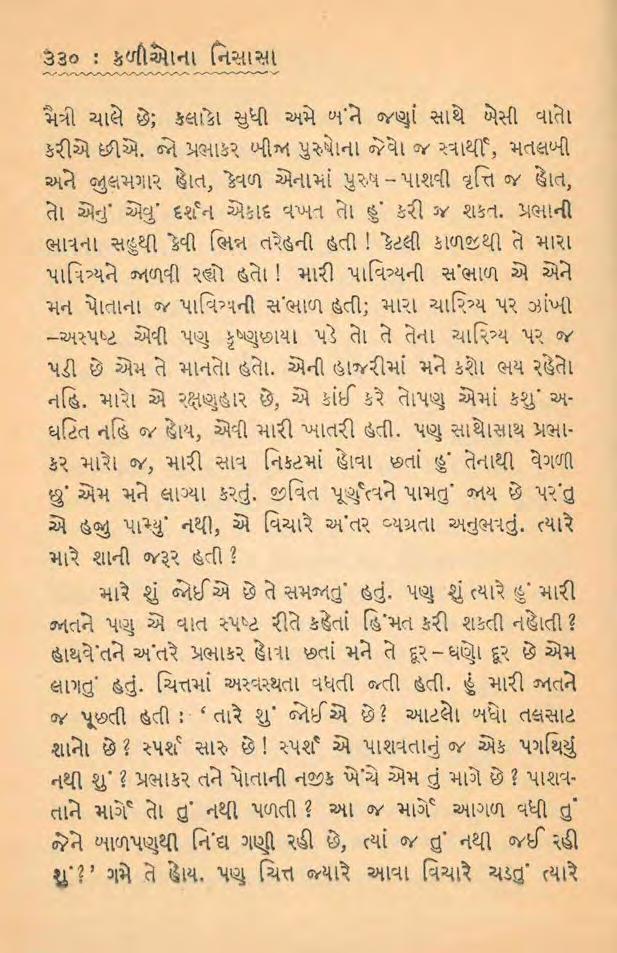 ૩૩૦ : કળીઓના નિસાસા
મૈત્રી ચાલે છે; કલાકો સુધી અમે બંને જણાં સાથે બેસી વાતો
કરીએ છીએ. જો પ્રભાકર બીજા પુરુષોના જેવો જ સ્વાર્થી, મતલબી
અને જુલમગાર હોત, કેવળ એનામાં પુરુષ – પાશવી વૃત્તિ જ હોત,
તો એનું એવું દર્શન એકાદ વખત તો હું કરી જ શકત. પ્રભાની
ભાવના સહુથી કેવી ભિન્ન તરેહની હતી ! કેટલી કાળજીથી તે મારા
પાવિત્ર્યને જાળવી રહ્યો હતો ! મારી પાવિત્ર્યની સંભાળ એ એને
મન પોતાના જ પાવિત્ર્યની સંભાળ હતી; મારા ચારિત્ર્ય પર ઝાંખી
–અસ્પષ્ટ એવી પણ કૃષ્ણછાયા પડે તો તે તેના ચારિત્ર્ય પર જ
પડી છે એમ તે માનતો હતો. એની હાજરીમાં મને કશો ભય રહેતો
નહિ. મારો એ રક્ષણહાર છે, એ કાંઈ કરે તોપણ એમાં કશું અ-
ઘટિત નહિ જ હોય, એવી મારી ખાતરી હતી. પણ સાથોસાથ પ્રભા-
કર મારો જ, મારી સાવ નિકટમાં હોવા છતાં હું તેનાથી વેગળી
છું એમ મને લાગ્યા કરતું. જીવિત પૂર્ણત્વને પામતું જાય છે પરંતુ
એ હજુ પામ્યું નથી, એ વિચારે અંતર વ્યગ્રતા અનુભવતું. ત્યારે
મારે શાની જરૂર હતી ?
મારે શું જોઈએ છે તે સમજાતું હતું. પણ શું ત્યારે હું મારી
જાતને પણ એ વાત સ્પષ્ટ રીતે કહેતાં હિંમત કરી શકતી નહોતી ?
હાથવેંતને અંતરે પ્રભાકર હોવા છતાં મને તે દૂર – ઘણો દૂર છે એમ
લાગતું હતું. ચિત્તમાં અસ્વસ્થતા વધતી જતી હતી. હું મારી જાતને
જ પૂછતી હતી : ‘ તારે શું જોઈએ છે? આટલો બધો તલસાટ
શાનો છે ? સ્પર્શ સારુ છે ! સ્પર્શ એ પાશવતાનું જ એક પગથિયું
નથી શું ? પ્રભાકર તને પોતાની નજીક ખેંચે એમ તું માગે છે ? પાશવ-
તાને માર્ગે તો તું નથી પળતી ? આ જ માર્ગે આગળ વધી તું
જેને બાળપણથી નિંદ્ય ગણી રહી છે, ત્યાં જ તું નથી જઈ રહી
શું ?’ ગમે તે હોય. પણ ચિત્ત જ્યારે આવા વિચારે ચડતું ત્યારે